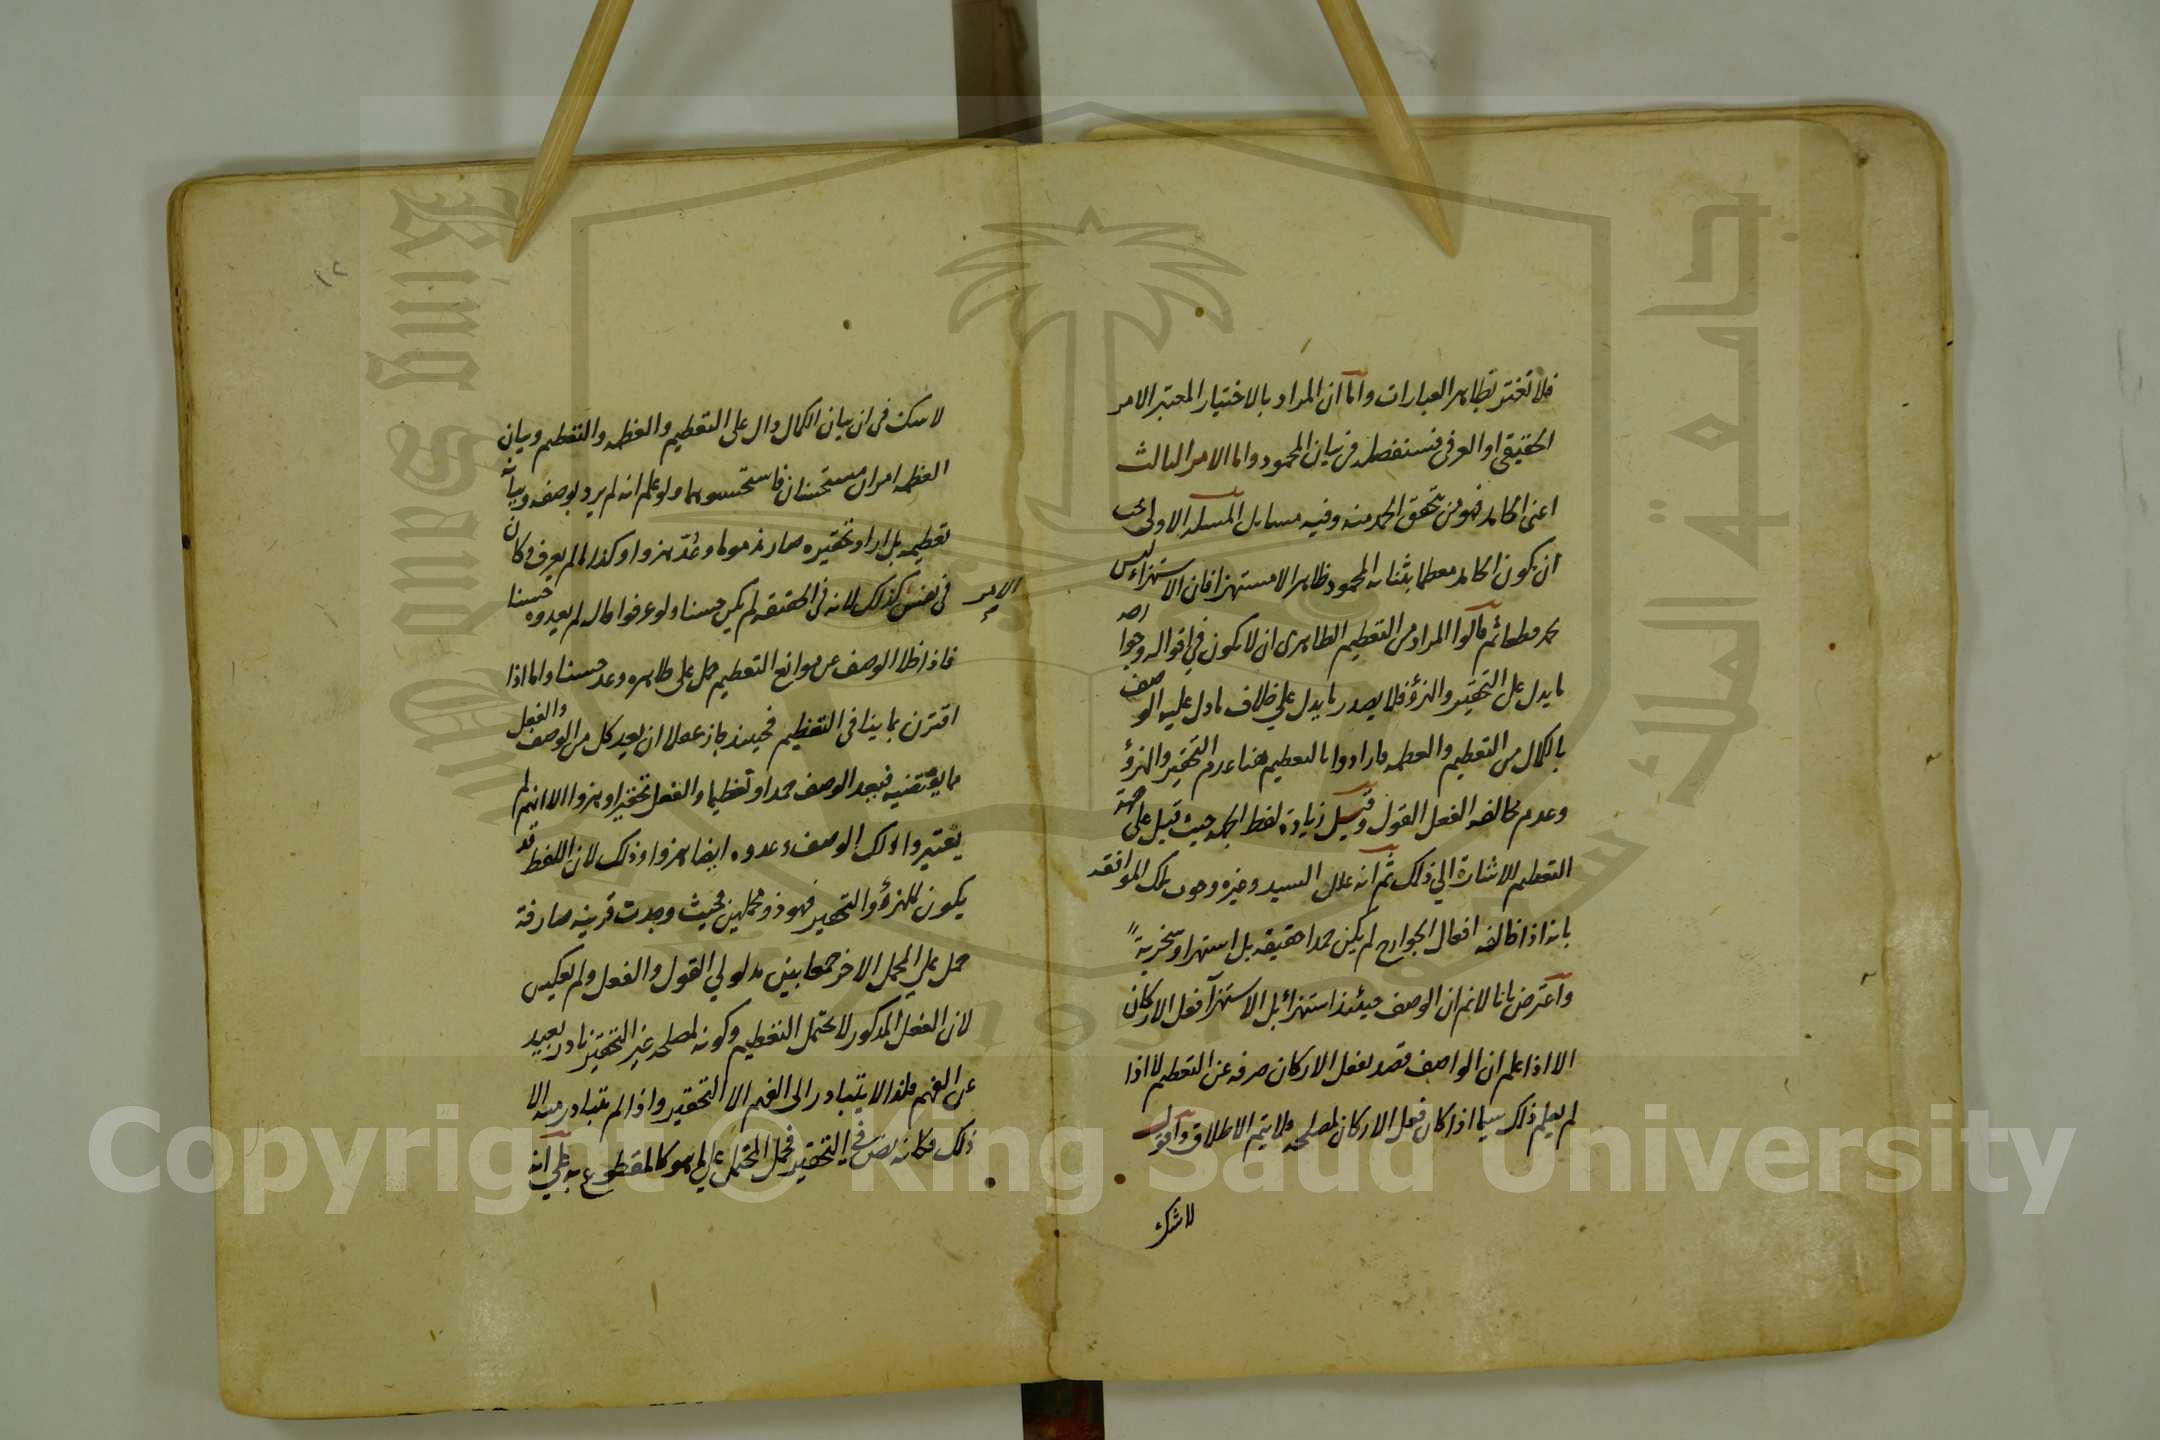 فلا تغتر بظاهر العبارات واما ان المراد بالاختيار المعتبر الامر
الحقيقي او العرفي فسنفصله في بيان المحمود واما الامر الثالث
اعني الحامد فهو من تحقق الحمد منه وفيه مسايل المسئلة الاولى يجب
ان يكون الحامد معظما بثنائه المحمود ظاهرا لا مستهزا فان الاستهزاء ليس
حمد قطعا ثم قالوا المراد من التعظيم الظاهري ان لا يكون في اقواله وجوارحه
ما يدل على التحقير والهزؤ فلا يصدر ما يدل على خلاف ما دل عليه الوصف
بالكمال من التعظيم والعظمه فارادوا بالتعظيم هنا عدم التحقير والهزؤ
وعدم مخالفه الفعل القول وقيل زيادة لفظ الجهه حيث قيل على جهة
التعظيم للاشارة الي ذلك ثم انه علل السيد وغيره وجوب تلك الموافقه
بانه اذا خالفه افعال الجوارح لم يكن حمدا حقيقه بل استهزا وسخرية
واعترض بانا لا نم ان الوصف حينئذ استهزائ بل الاستهزآ فعل الاركان
الا اذا علم ان الواصف قصد بفعل الاركان صرفه عن التعظيم لا اذا
لم يعلم ذلك سيما اذا كان فعل الاركان لمصلحه فلا يتم الاطلاق واقول
لا شك
١٢
لا شك في ان بيان الكمال دال على التعظيم والعظمه والتعظيم وبيان
العظمه امران مستحسنان فاستحسنوهما ولو علم انه لم يرد بوصفه وبيانه
تعظيمه بل اراد تحقيره صار مذموما وعُدّ هزوا وكذا لو لم يعرف وكان
في نفس الامر كذلك لانه في الحقيقه لم يكن حسنا ولو عرفوا حاله لم يعدوه حسنا
فاذا خلا الوصف عن موانع التعظيم حمل على ظاهره وعد حسنا واما اذا
اقترن بما ينافى التعظيم فحينئذ جاز عقلا ان يعد كل من الوصف والفعل
ما يقتضيه فيعد الوصف حمدا وتعظيما والفعل تحقيرا وهزوا الا انهم لم
يعتبروا ذلك الوصف وعدوه ايضا هزوا وذلك لان اللفظ قد
يكون للهزؤ والتحقير فهو ذو محملين فحيث وجدت قرينه صارفة
حمل على المحمل الاخر جمعا بين مدلولي القول والفعل ولم يعكس
لان الفعل المذكور لا يحتمل التعظيم وكونه لمصلحه غير التحقير نادر بعيد
عن الفهم فلذا لا يتبادر الى الفهم الا التحقير واذا لم يتبادر منه الا
ذلك فكانه نص في التحقير فحمل المحتمل على ما هو كالمقطوع به على انه
جامعة الملك سعود
King Saud University
Copyright © King Saud University